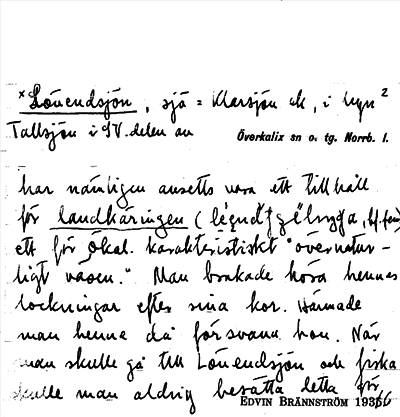 ×Lövendsjön, sjö = Klarsjön ek, i byn 2
Tallsjön i SV. delen av
Överkalix sn o. tg. Norrb. l.
har nämligen ansetts vara ett tillhåll
för landkäringen (
ett för Ökal. karakteristiskt "övernatur-
ligt väsen." Man brukade höra hennes
lockningar efter sina kor. Härmade
man henne då försvann hon. När
man skulle gå till Lövendsjön och fiska
skulle man aldrig berätta detta för
EDVIN BRÄNNSTRÖM 1936